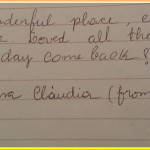 nderful place, e
loved all the
day come back?
na Cláudia (from